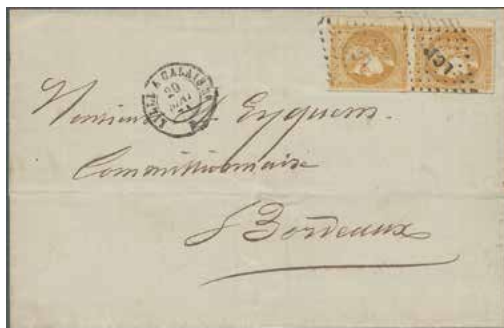 LCP
LILLE A CALAIS
29
MAI
71
Monsieur Eyquem.
Commissionnaire
Bordeaux